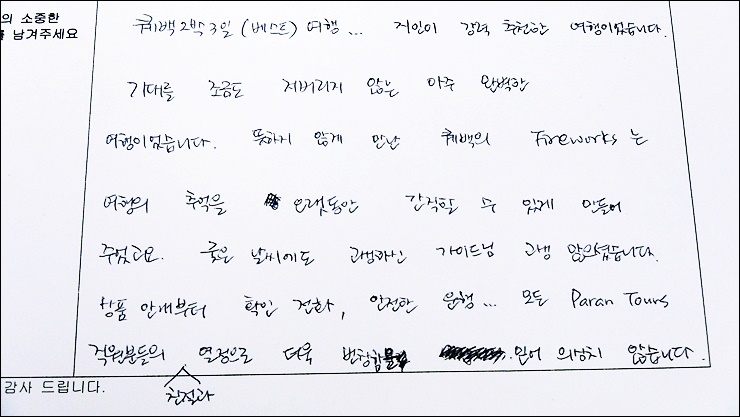 의 소중한
를 남겨주세요
퀘백 2박 3일 (베스트) 여행... 지인이 강력 추천한 여행이었습니다.
기대를 조금도 저버리지 않은 아주 완벽한
여행이었습니다. 뜻하지 않게 만난 퀘백의 Fireworks 는
여행의 추억을 오랫동안 간직할 수 있게 만들어
주었고요. 궂은 날씨에도 고생하신 가이드님 고생 많으셨습니다.
상품 안내부터 확인 전화, 안전한 운행... 모든 Paran Tours
직원분들의 친절과 열정으로 더욱 번창함을 믿어 의심치 않습니다.
감사 드립니다.